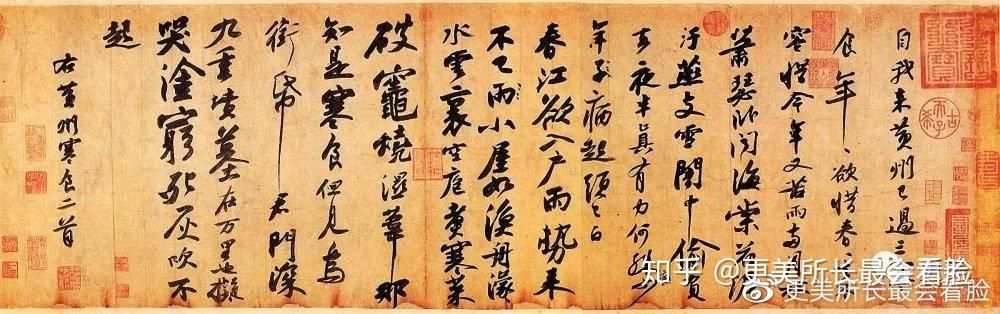 自我来黄州已過三
食年、欲惜春、去不
容惜今年又苦雨兩月秋
蕭瑟卧聞海棠花泥
汙燕支雪闇中偷負
去夜半真有力何殊少
年子病起須已白
春江欲入户雨勢来
不已雨小屋如漁舟濛
水雲裏空庖煮寒菜
破竈燒濕葦那
知是寒食但見烏
銜帋君門深
九重墳墓在万里也擬
哭塗窮死灰吹不
起
右黄州寒食二首
古希天子
知乎 @更美所长最会看脸
@更美所长最会看脸